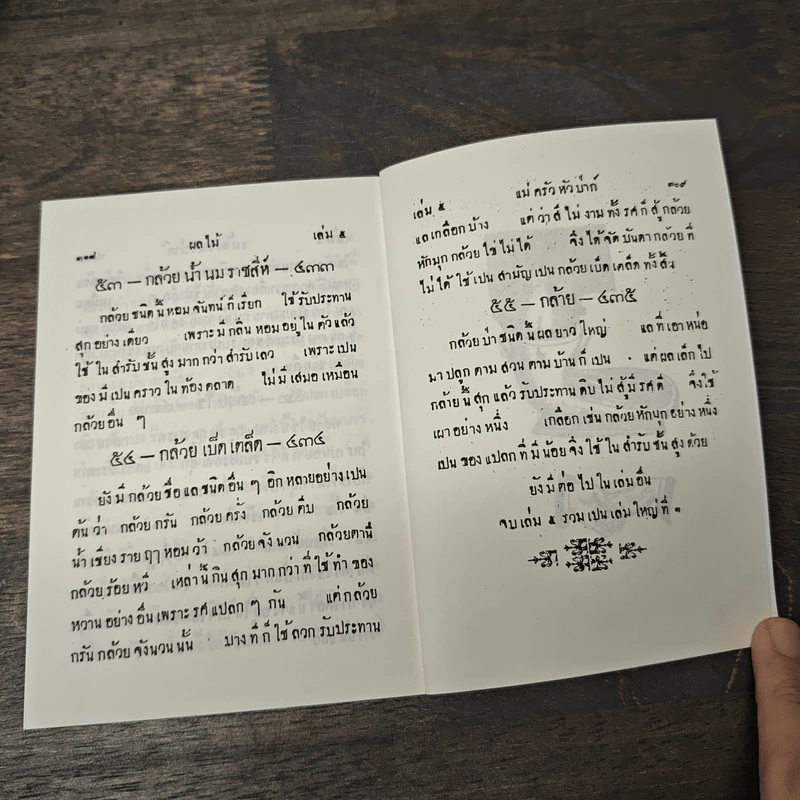 ๓๑๘ ผลไม้ เล่ม ๕
๕๓ — กล้วย น้ำ นม ราชสีห์ — ๔๓๓
กล้วย ชนิด นี้ หอม จันทน์ ก็ เรียก ใช้ รับประทาน
สุก อย่าง เดียว เพราะ มี กลิ่น หอม อยู่ ใน ตัว แล้ว
ใช้ ใน สำรับ ชั้น สูง มาก กว่า สำรับ เลว เพราะ เปน
ของ มี เปน คราว ใน ท้อง ตลาด ไม่ มี เสมอ เหมือน
กล้วย อื่น ๆ
๕๔ — กล้วย เบ็ด เตล็ด — ๔๓๔
ยัง มี กล้วย ชื่อ แล ชนิด อื่น ๆ อิก หลาย อย่าง เปน
ต้น ว่า กล้วย กรัน กล้วย ครั่ง กล้วย ตีบ กล้วย
น้ำ เชียง ราย ฤๅ หอม ว้า กล้วย จัง นวน กล้วยตานี
กล้วย ร้อย หวี เหล่า นี้ กิน สุก มาก กว่า ที่ ใช้ ทำ ของ
หวาน อย่าง อื่น เพราะ รศ แปลก ๆ กัน แต่ กล้วย
กรัน กล้วย จังนวน นั้น บาง ที ก็ ใช้ ลวก รับประทาน
เล่ม ๕ แม่ ครัว หัว ป่าก์ ๓๑๙
แล เกลือก บ้าง แต่ ว่า สี ไม่ งาม ทั้ง รศ ก็ สู้ กล้วย
หักมุก กล้วย ไข่ ไม่ ได้ จึง ได้ จัด บันดา กล้วย ที่
ไม่ ได้ ใช้ เปน สามัญ เปน กล้วย เบ็ด เตล็ด ทั้ง สิ้น
๕๕ — กล้าย — ๔๓๕
กล้วย ป่า ชนิด นี้ ผล ยาว ใหญ่ แล ที่ เอา หน่อ
มา ปลูก ตาม สวน ตาม บ้าน ก็ เปน แต่ ผล เล็ก ไป
กล้าย นี้ สุก แล้ว รับประทาน ดิบ ไม่ สู้ มี รศ ดี จึ่ง ใช้
เผา อย่าง หนึ่ง เกลือก เช่น กล้วย หักมุก อย่าง หนึ่ง
เปน ของ แปลก ที่ มี น้อย จึง ใช้ ใน สำรับ ชั้น สูง ด้วย
ยัง มี ต่อ ไป ใน เล่ม อื่น
จบ เล่ม ๕ รวม เปน เล่ม ใหญ่ ที่ ๑